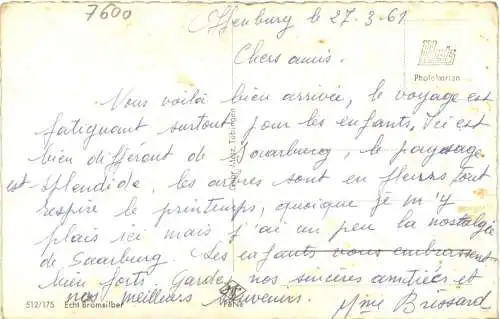 7600
Offenburg le 27-3-61
Photokarton
Chers amis.
Nous voilà bien arrivée, le voyage est
fatiguant surtout pour les enfants. Ici est
bien différent de Saarburg, le paysage
est splendide, les arbres sont en fleurs tout
respire le printemps, quoique je m'y
plais ici mais j'ai un peu la nostalgie
de Saarburg. Les enfants vous embrassent
bien forts. Garder nos sincères amitiés et
nos meilleurs souvenirs. Mme Brissard
512/175 Echt Bromsilber
Tübingen